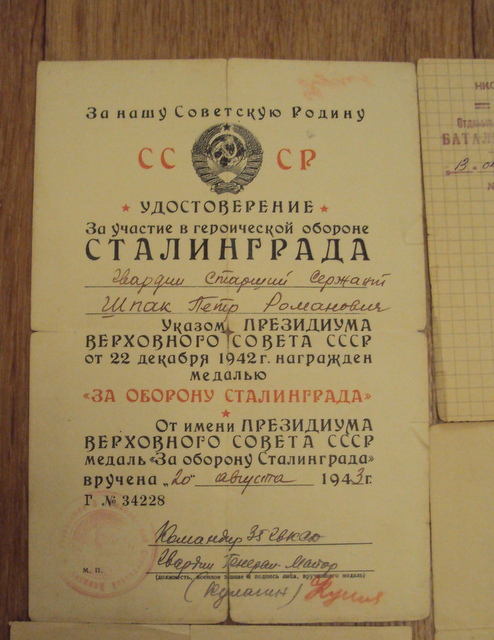 За нашу Советскую Родину
СССР
★ УДОСТОВЕРЕНИЕ ★
За участие в героической обороне
СТАЛИНГРАДА
Гвардии Старший Сержант
Шпак Петр Романович
Указом ПРЕЗИДИУМА
ВЕРХОВНОГО СОВЕТА СССР
от 22 декабря 1942 г. награжден
медалью
«ЗА ОБОРОНУ СТАЛИНГРАДА»
★
От имени ПРЕЗИДИУМА
ВЕРХОВНОГО СОВЕТА СССР
медаль «За оборону Сталинграда»
вручена „20" августа 1943 г.
Г № 34228
Командир 35
Гвардии Генерал-Майор
М. П.
(должность, военное звание и подпись лица, вручившего медаль)
(Кулагин)
НКО
БАТАЛ